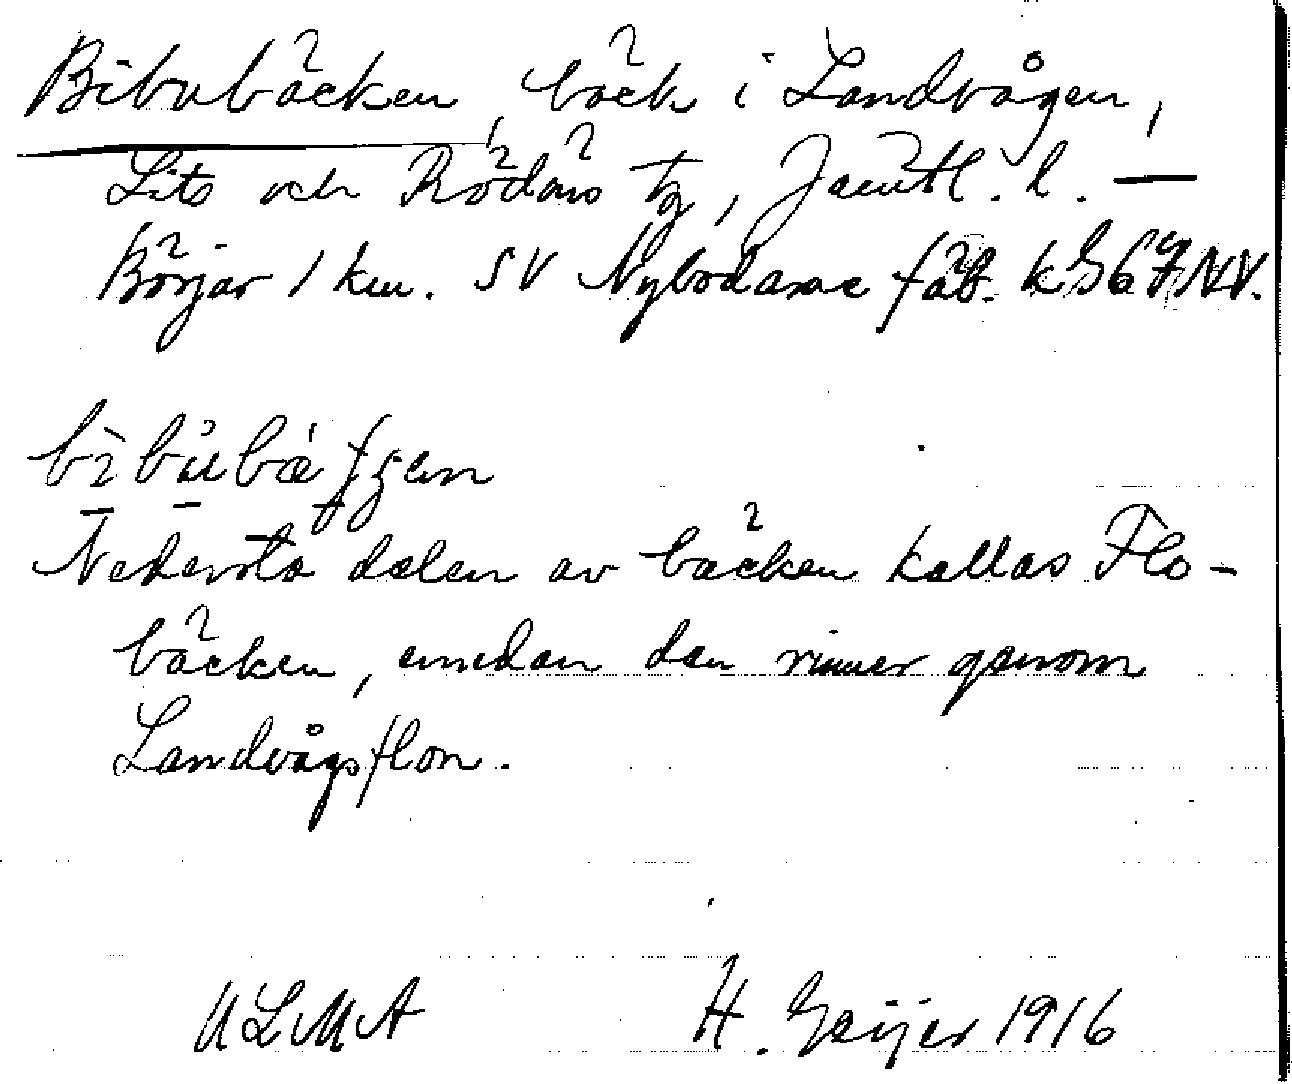 Bibubäcken, bäck i Landvågen,
Lits och Rödöns tg, Jämtl. l. —
Börjar 1 km. SV Nybodarne fäb. k 867 NV.
Nedersta delen av bäcken kallas Flo-
bäcken, emedan den rinner genom
Landvågsflon.
ULMA H. Geijer 1916